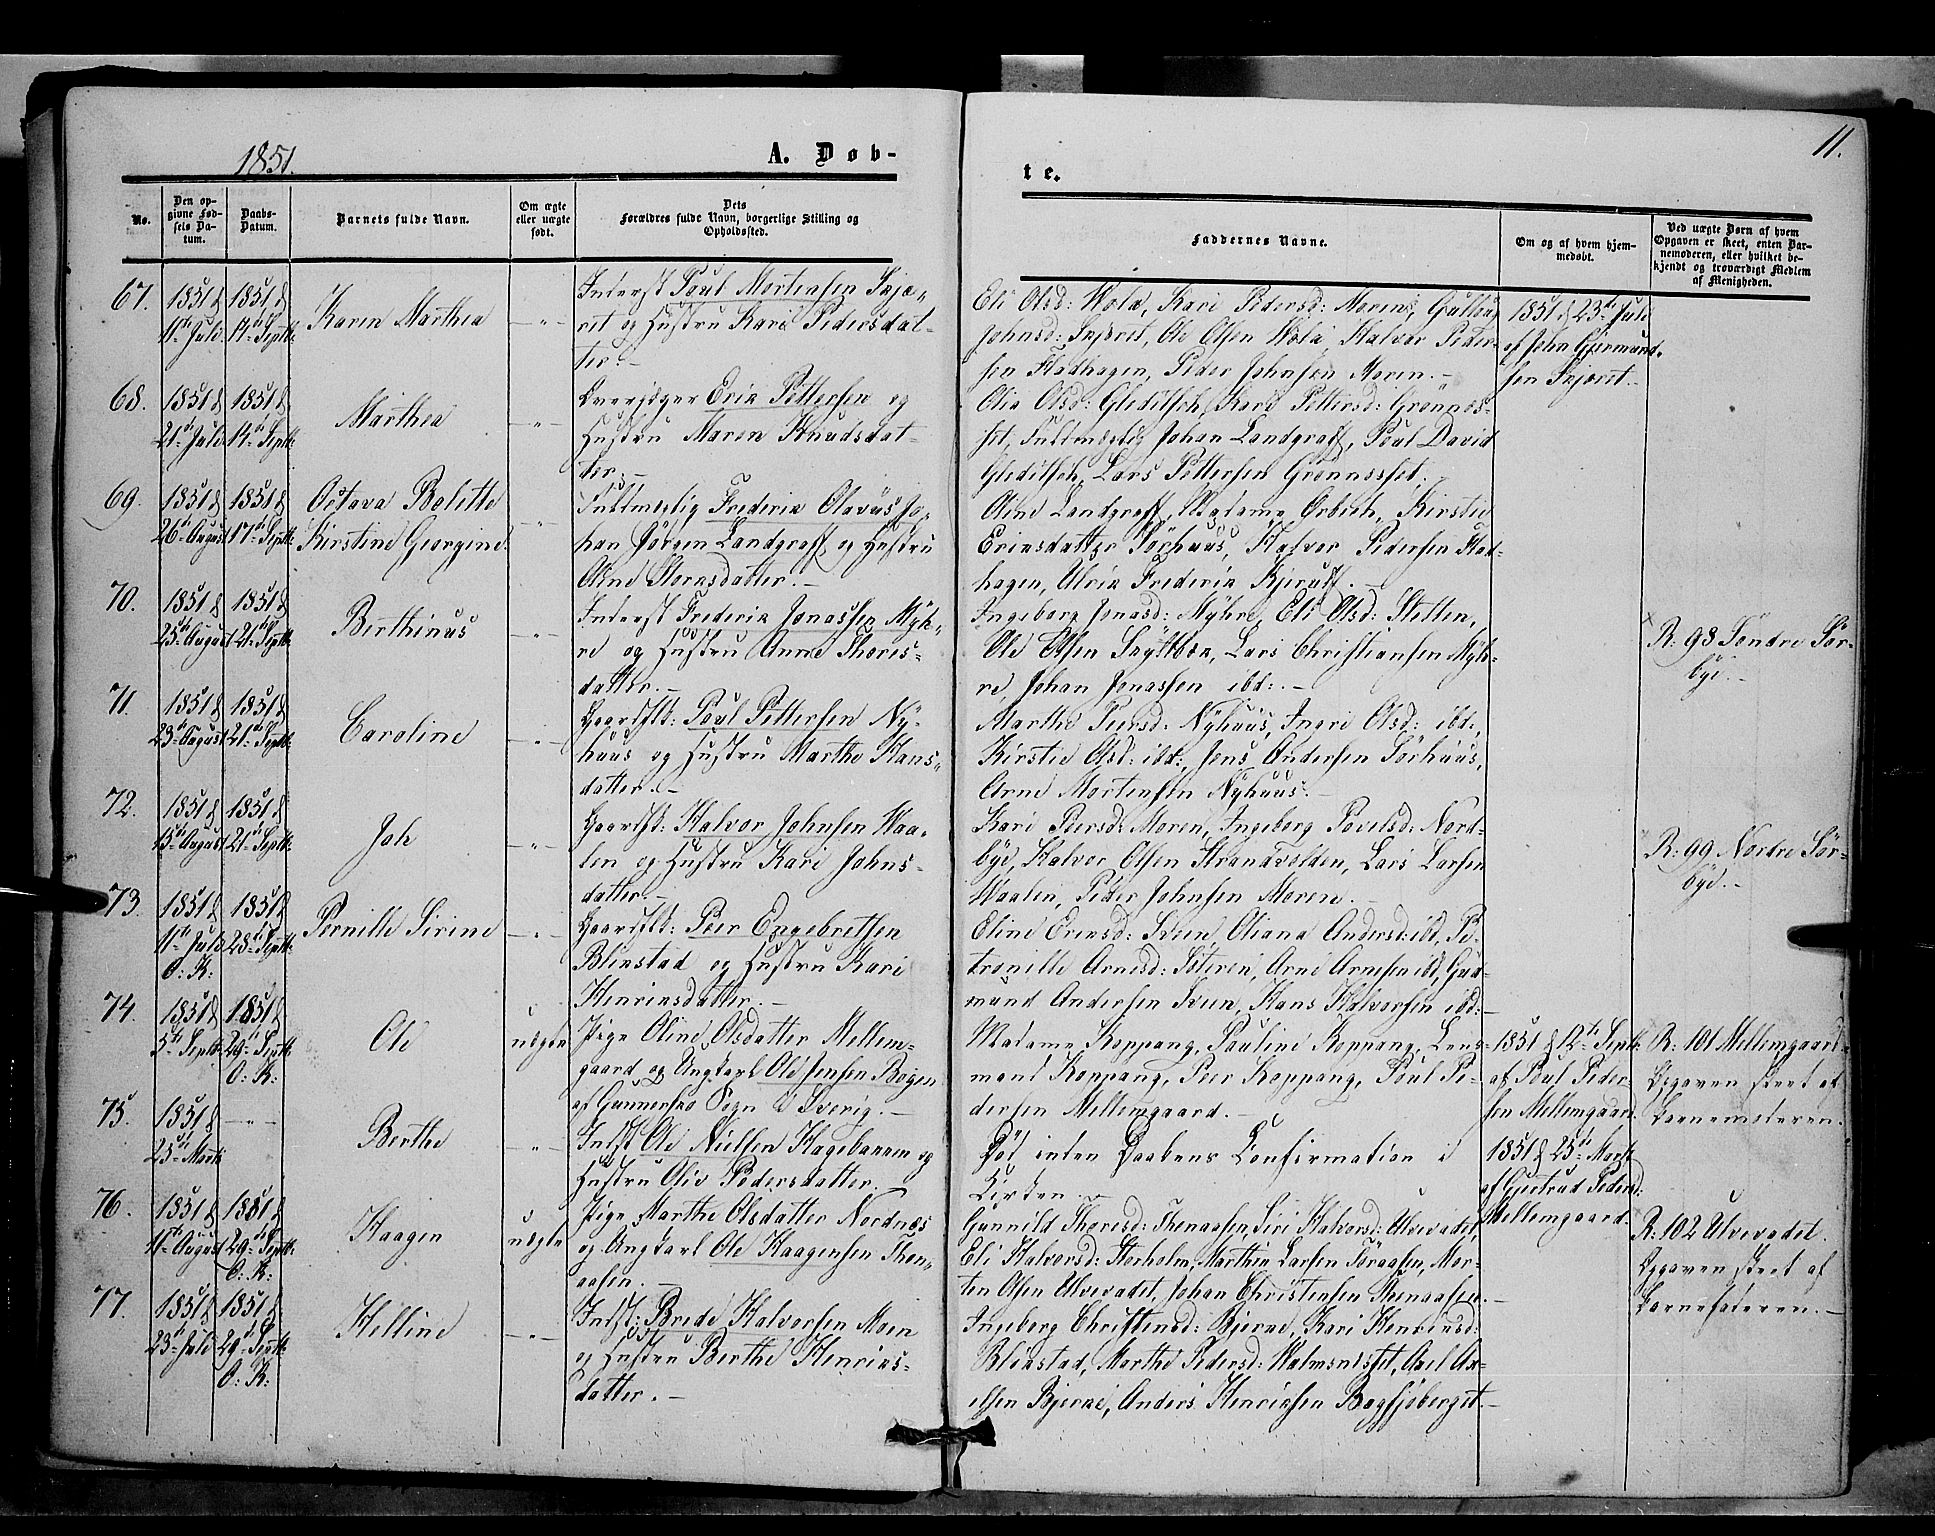 1851.
A. Døb-
te.
11.
No.
Den op-
givne Fød-
sels Da-
tum.
Daabs-
Datum.
Barnets fulde Navn.
Om ægte
eller uægte
født.
Dets
Forældres fulde Navn, borgerlige Stilling og
Opholdssted.
Faddernes Navne.
Om og af hvem hjem-
medøbt.
Ved uægte Børn af hvem
Opgaven er skeet, enten Bar-
nemoderen, eller hvilket be-
kjendt og troværdigt Medlem
af Menigheden.
67.
1851 d
11te Juli
1851 d
14de Septbr
Karen Marthea
—"—
Inderst Poul Mortensen Skjæ-
ret og Hustru Kari Pedersdat-
ter.—
Eli Olsd: Wola, Kari Pedersd: Moren, Gullaug
Johnsd: Skjæret, Ole Olsen Wola, Halvor Peder-
sen Stadhagen, Peder Johnsen Moren.—
1851 d 23de Juli
af John Gjermund-
sen Skjæret.—
68.
1851 d
21de Juli
1851 d
14de Septbr
Marthea
—"—
Overjæger Erik Pettersen og
Hustru Maren Knudsdat-
ter.—
Olia Olsd: Gleditsch, Kari Pettersd: Grønnes-
set, Fuldmægtig Johan Landgraff, Poul David
Gleditsch, Lars Pettersen Grønnesset.
69.
1851 d
26de August
1851 d
17de Septbr
Octava Bolette
Kirstine Georgine
—"—
Fuldmægtig Frederik Olavus Jo-
han Jörgen Landgraff og Hustru
Oline Stornsdatter.—
Oline Landgraff, Madame Orbech, Kirstie
Eriksdatter Sörhuus, Halvor Pedersen Stad-
hagen, Ulrik Frederik Kjerulf.—
70.
1851 d
25de August
1851 d
21de Septbr
Berthinus
—"—
Inderst Frederik Jonassen Myh-
re og Hustru Anne Thores-
datter.—
Ingeborg Jonasd: Myhre, Eli Olsd: Stetten,
Ole Olsen Snyltbæk, Lars Christiansen Myh-
re, Johan Jonassen ibd:.—
R: 98 Søndre Sör-
bye.—
71.
1851 d
23de August
1851 d
21de Septbr
Caroline
—"—
Gaardsb: Poul Pettersen Ny-
huus og Hustru Marthe Hans-
datter.—
Marthe Peersd: Nyhuus, Ingri Olsd: ibd:,
Kirstie Olsd: ibd:, Jens Andersen Sörhuus,
Arne Mortensen Nyhuus.
72.
1851 d
15de August
1851 d
21de Septbr
Joh
—"—
Gaardsb: Halvor Johnsen Waa-
len og Hustru Kari Johns-
datter.—
Kari Peersd: Moren, Ingeborg Povelsd: Nord-
bye, Halvor Olsen Strandvolden, Lars Larsen
Waalen, Peder Johnsen Moren.—
R: 99 Nordre Sör-
bye.—
73.
1851 d
11te Juli
1851 d
28de Septbr
O: K:
Pernille Sirine
—"—
Gaardsb: Peer Engebretsen
Blekstad og Hustru Kari
Henriksdatter.—
Eline Eriksd: Sveen, Oliana Andersd: ibd, Pe-
tronille Arnesd: Söteren, Arne Arnesen ibd, Gud-
mund Andersen Sveen, Hans Halvorsen ibd:
74.
1851 d
5te Septbr
1851 d
29de Septbr
O: K:
Ole
uægte
Pige Oline Olsdatter Mellem-
gaard og Ungkarl Ole Jensen Bogen
af Gunnerskog Sogn i Sverig.—
Madame Koppang, Pauline Koppang, Lens-
mand Koppang, Peer Koppang, Poul Pe-
dersen Mellemgaard.—
1851 d 12te Septbr
af Poul Peder-
sen Mellemgaard.
R: 101 Mellemgaard.
Opgaven skeet af
Barnemoderen.
75.
1851 d
25de Marts
—"—
Berthe
—"—
Indst Ole Nielsen Hagebakken og
Hustru Olio Pedersdatter.—
Död inden Daabens Confirmation i
Kirken.—
1851 d 25de Marts
af Gjertrud Pedersd:
Mellemgaard.
76.
1851 d
11te August
1851 d
29de Septbr
O: K:
Haagen
uægte
Pige Marthe Olsdatter Nordnæs
og Ungkarl Ole Haagensen Then-
aasen.—
Gunnild Thoresd: Thenaasen, Siri Halvorsd: Ulvevadet,
Eli Halvorsd: Storholm, Marthin Larsen Töraasen, Mor-
ten Olsen Ulvevadet, Johan Christensen Thenaasen.—
R: 102 Ulvevadet.
Opgaven skeet af
Barnefaderen.—
77.
1851 d
23de Juli
1851 d
29de Septbr
O: K:
Helline
—"—
Indst: Brede Halvorsen Moen
og Hustru Berthe Henriks-
datter.—
Ingeborg Christensd: Bjerke, Kari Henriksd:
Blekstad, Marthe Pedersd: Malmnesset, Axel Ax-
elsen Bjerke, Anders Henriksen Bagsjöberget.—